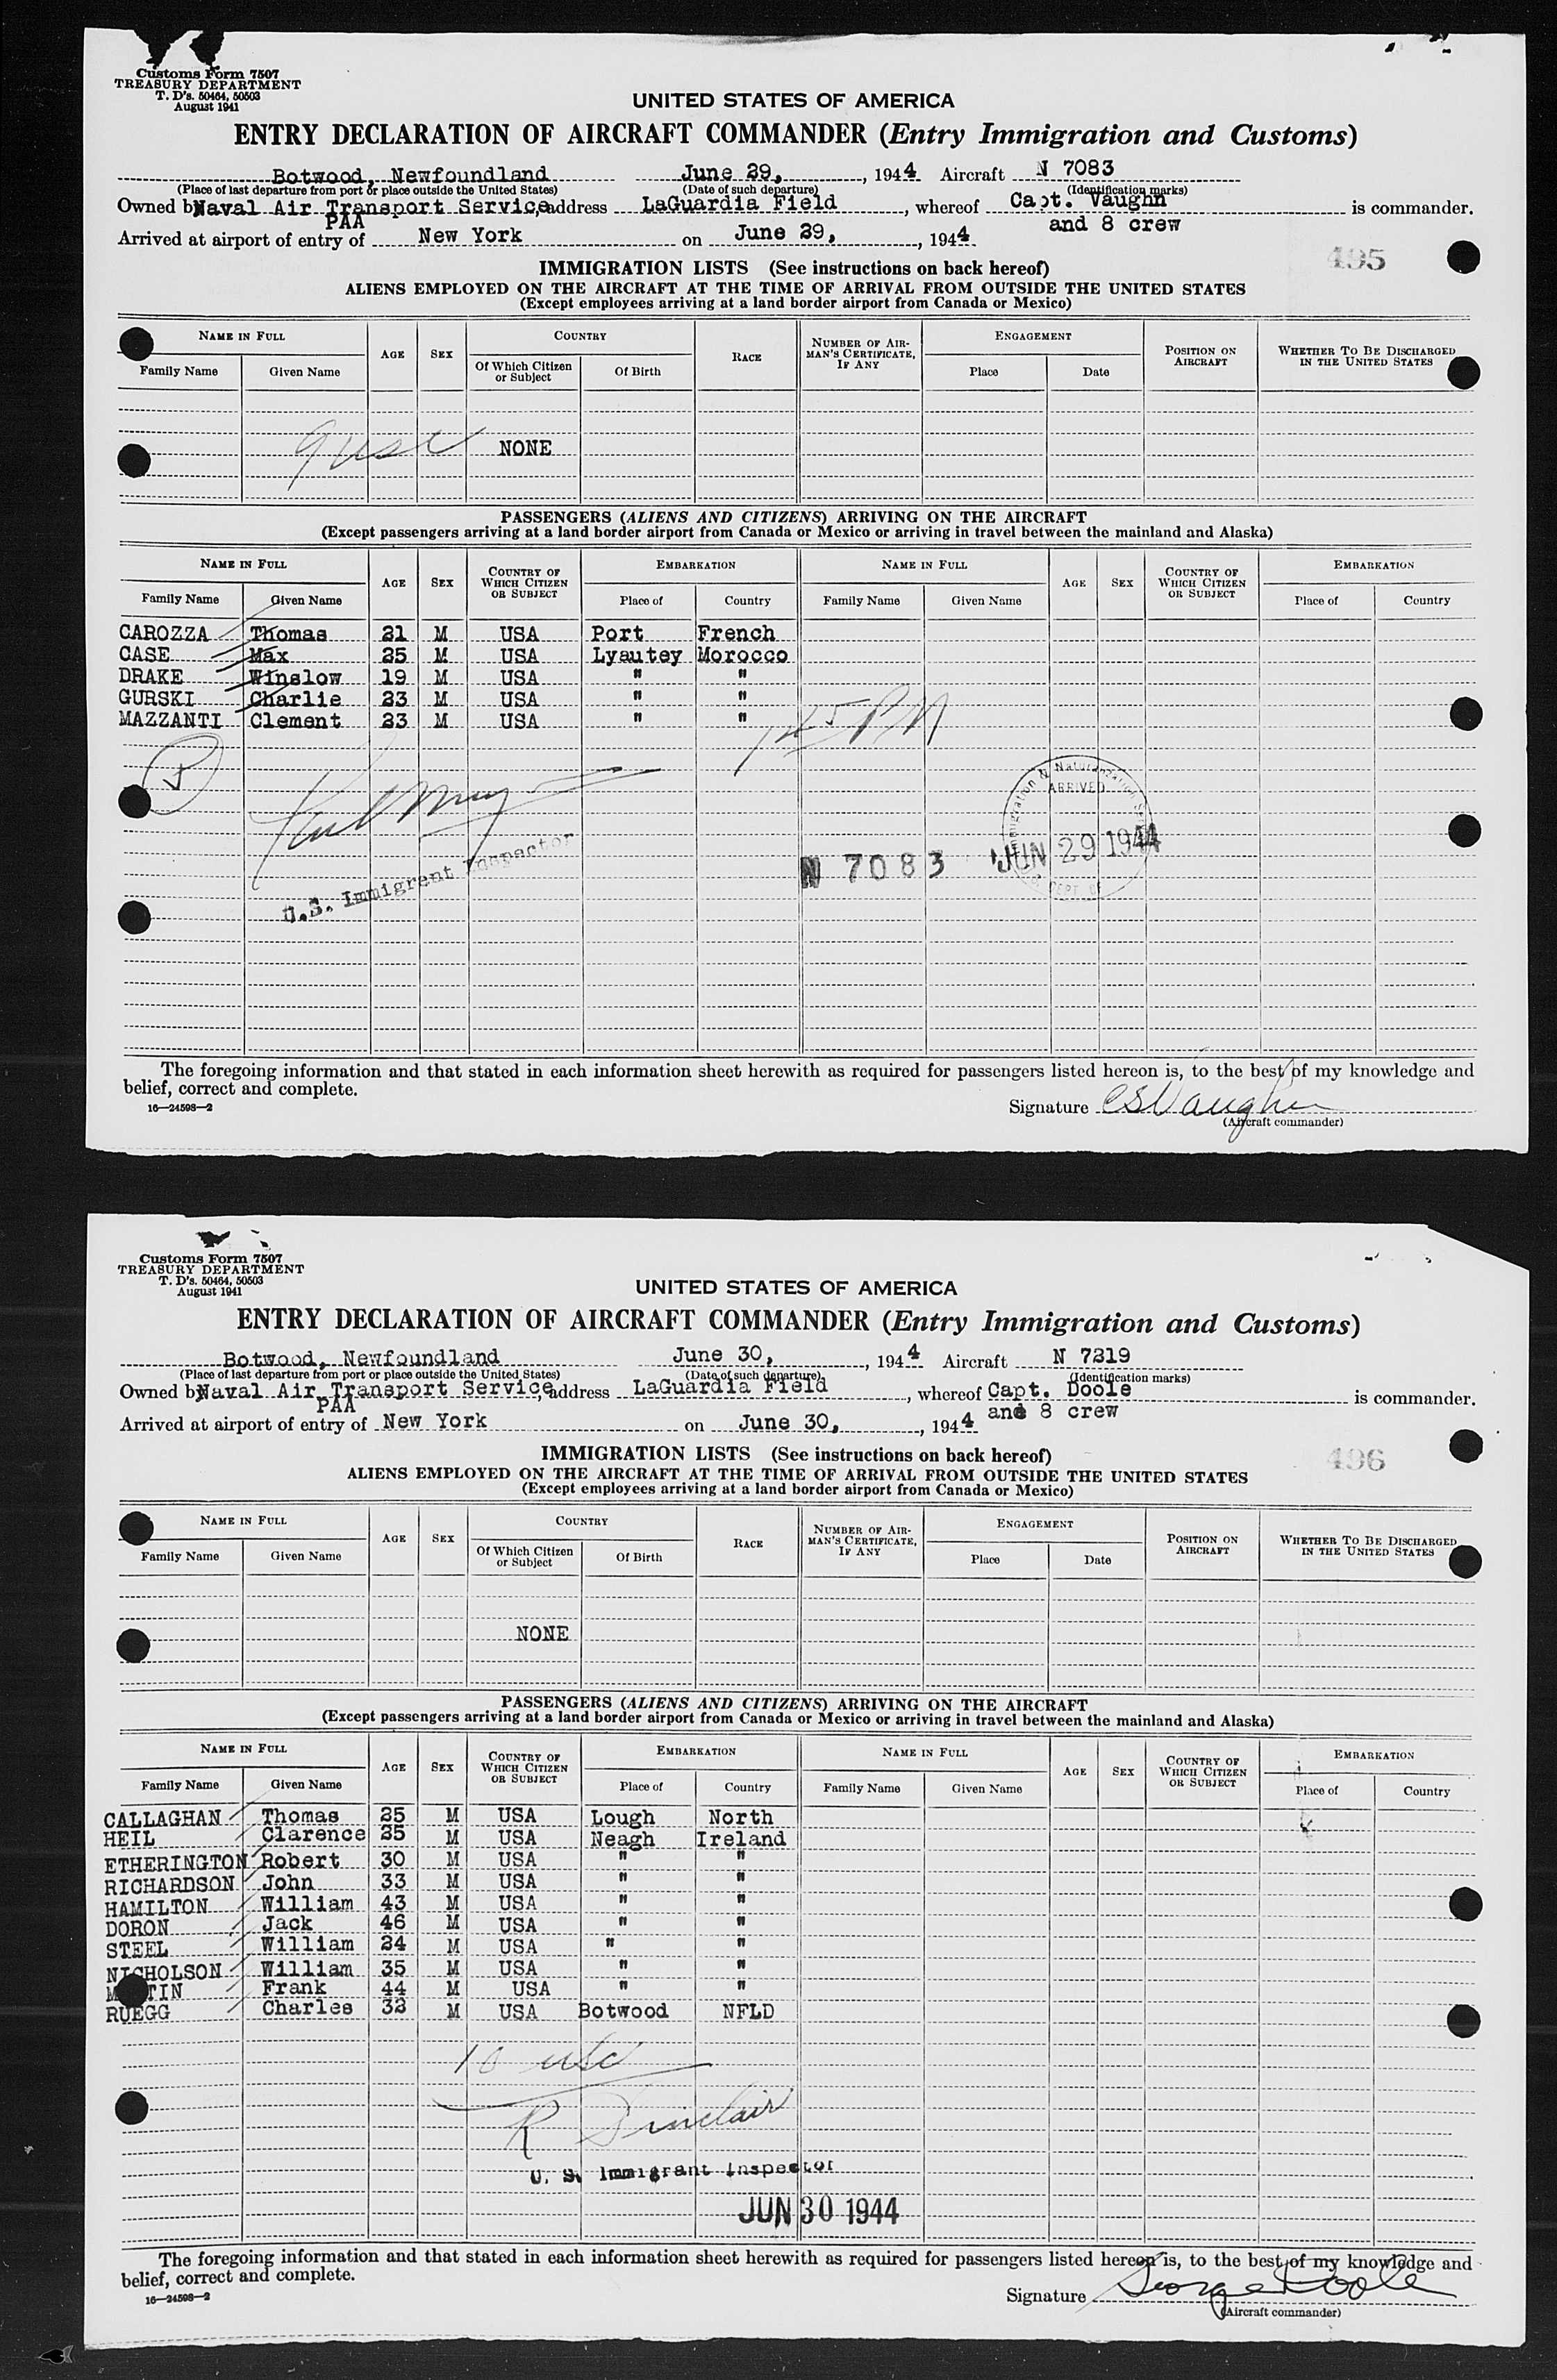 Customs Form 7507
TREASURY DEPARTMENT
T. D's. 50464, 50503
August 1941
UNITED STATES OF AMERICA
ENTRY DECLARATION OF AIRCRAFT COMMANDER (Entry Immigration and Customs)
Botwood, Newfoundland June 29, 1944 Aircraft N 7083
(Place of last departure from port or place outside the United States) (Date of such departure) (Identification marks)
Owned by Naval Air Transport Service, address LaGuardia Field, whereof Capt. Vaughn is commander.
PAA and 8 crew
Arrived at airport of entry of New York on June 29, 1944.
495
IMMIGRATION LISTS (See instructions on back hereof)
ALIENS EMPLOYED ON THE AIRCRAFT AT THE TIME OF ARRIVAL FROM OUTSIDE THE UNITED STATES
(Except employees arriving at a land border airport from Canada or Mexico)
NAME IN FULL AGE SEX COUNTRY RACE NUMBER OF AIRMAN'S CERTIFICATE, IF ANY ENGAGEMENT POSITION ON AIRCRAFT WHETHER TO BE DISCHARGED IN THE UNITED STATES
Family Name Given Name Of Which Citizen or Subject Of Birth Place Date
9 usc NONE
PASSENGERS (ALIENS AND CITIZENS) ARRIVING ON THE AIRCRAFT
(Except passengers arriving at a land border airport from Canada or Mexico or arriving in travel between the mainland and Alaska)
NAME IN FULL AGE SEX COUNTRY OF WHICH CITIZEN OR SUBJECT EMBARKATION NAME IN FULL AGE SEX COUNTRY OF WHICH CITIZEN OR SUBJECT EMBARKATION
Family Name Given Name Place of Country Family Name Given Name Place of Country
CAROZZA Thomas 21 M USA Port French
CASE Max 25 M USA Lyautey Morocco
DRAKE Winslow 19 M USA " "
GURSKI Charlie 23 M USA " "
MAZZANTI Clement 23 M USA " "
145 PM
Immigration & Naturalization
ARRIVED
N 7083 JUN 29 1944
U.S. Immigrent Inspector
The foregoing information and that stated in each information sheet herewith as required for passengers listed hereon is, to the best of my knowledge and
belief, correct and complete.
16—24598—2
Signature CS Vaughn
(Aircraft commander)
Customs Form 7507
TREASURY DEPARTMENT
T. D's. 50464, 50503
August 1941
UNITED STATES OF AMERICA
ENTRY DECLARATION OF AIRCRAFT COMMANDER (Entry Immigration and Customs)
Botwood, Newfoundland June 30, 1944 Aircraft N 7219
(Place of last departure from port or place outside the United States) (Date of such departure) (Identification marks)
Owned by Naval Air Transport Service, address LaGuardia Field, whereof Capt. Doole is commander.
PAA and 8 crew
Arrived at airport of entry of New York on June 30, 1944
496
IMMIGRATION LISTS (See instructions on back hereof)
ALIENS EMPLOYED ON THE AIRCRAFT AT THE TIME OF ARRIVAL FROM OUTSIDE THE UNITED STATES
(Except employees arriving at a land border airport from Canada or Mexico)
NAME IN FULL AGE SEX COUNTRY RACE NUMBER OF AIRMAN'S CERTIFICATE, IF ANY ENGAGEMENT POSITION ON AIRCRAFT WHETHER TO BE DISCHARGED IN THE UNITED STATES
Family Name Given Name Of Which Citizen or Subject Of Birth Place Date
NONE
PASSENGERS (ALIENS AND CITIZENS) ARRIVING ON THE AIRCRAFT
(Except passengers arriving at a land border airport from Canada or Mexico or arriving in travel between the mainland and Alaska)
NAME IN FULL AGE SEX COUNTRY OF WHICH CITIZEN OR SUBJECT EMBARKATION NAME IN FULL AGE SEX COUNTRY OF WHICH CITIZEN OR SUBJECT EMBARKATION
Family Name Given Name Place of Country Family Name Given Name Place of Country
CALLAGHAN Thomas 25 M USA Lough North
HEIL Clarence 25 M USA Neagh Ireland
ETHERINGTON Robert 30 M USA " "
RICHARDSON John 33 M USA " "
HAMILTON William 43 M USA " "
DORON Jack 46 M USA " "
STEEL William 24 M USA " "
NICHOLSON William 35 M USA " "
Frank 44 M USA " "
RUEGG Charles 32 M USA Botwood NFLD
10 usc
R Sinclair
U. S. Immigrant Inspector
JUN 30 1944
The foregoing information and that stated in each information sheet herewith as required for passengers listed hereon is, to the best of my knowledge and
belief, correct and complete.
16—24598—2
Signature George Doole
(Aircraft commander)